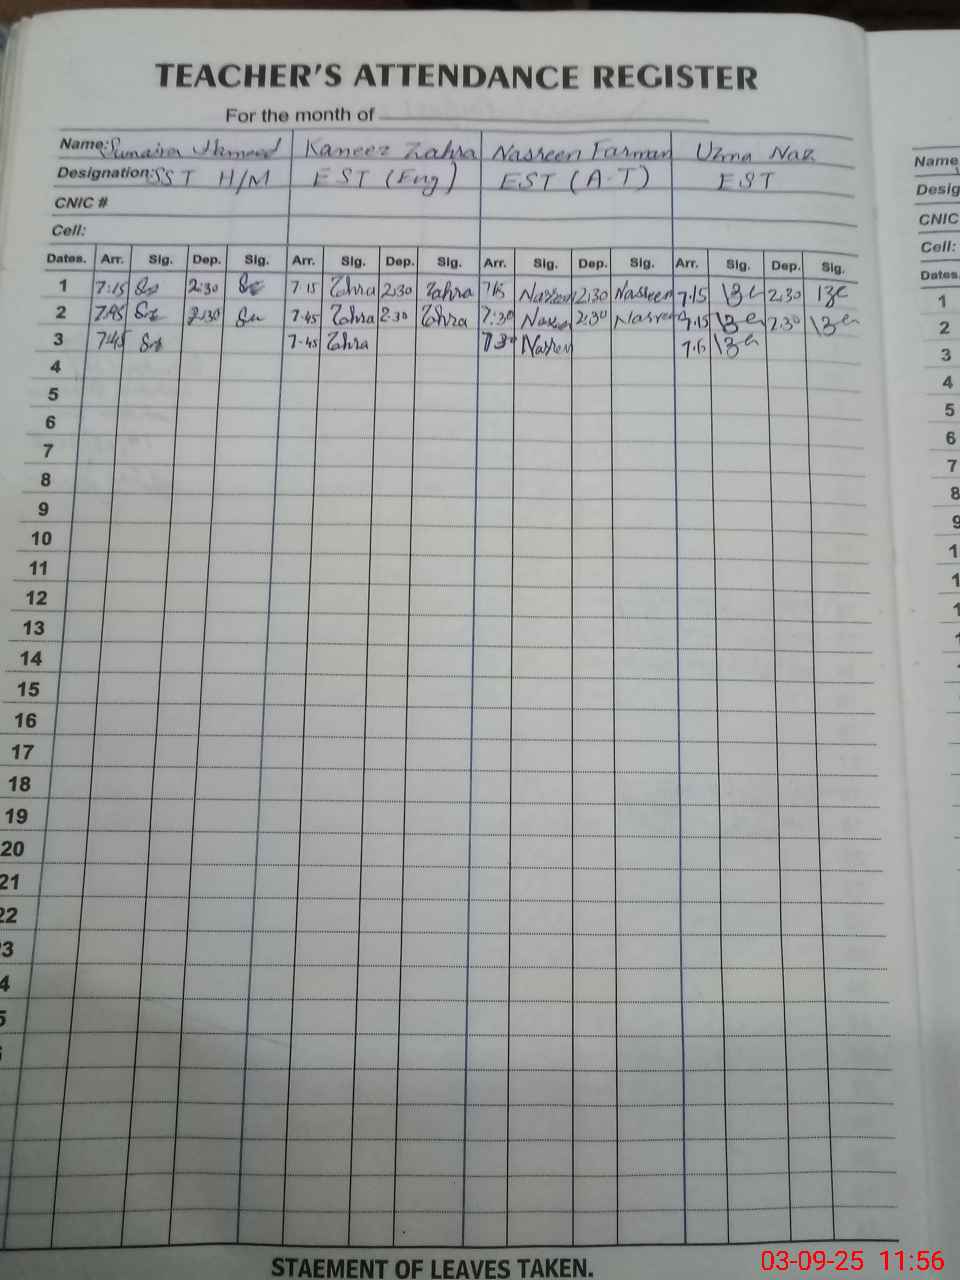 TEACHER'S ATTENDANCE REGISTER
For the month of
Name: Sumaira Ahmeed Kaneez Zahra Nasreen Farman Uzma Naz
Designation: SST H/M EST (Eng) EST (A.T) EST
CNIC #
Cell:
Dates. Arr. Sig. Dep. Sig. Arr. Sig. Dep. Sig. Arr. Sig. Dep. Sig. Arr. Sig. Dep. Sig.
1 7:15 2:30 7:15 Zahra 2:30 Zahra 7:15 Nasreen 2:30 Nasreen 7:15 2:30
2 7:45 2:30 7:45 Zahra 2:30 Zahra 7:30 Nasreen 2:30 Nasreen 7:15 2:30
3 7:45 7:45 Zahra 7:30 Nasreen
4
5
6
7
8
9
10
11
12
13
14
15
16
17
18
19
20
21
22
3
4
5
STAEMENT OF LEAVES TAKEN.
Name
Desig
CNIC
Cell:
Dates
1
2
3
4
5
6
7
8
9
1
1
1
1
03-09-25 11:56